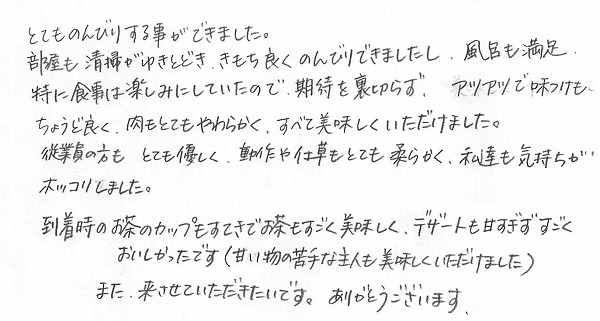 とてものんびりする事ができました。
部屋も清掃がゆきとどき、きもち良くのんびりできましたし、風呂も満足、
特に食事は楽しみにしていたので、期待を裏切らず、アツアツで味つけも、
ちょうど良く、肉もとてもやわらかく、すべて美味しくいただけました。
従業員の方も とても優しく、動作や仕草もとても柔らかく、私達も気持ちが
ホッコリしました。
到着時のお茶のカップもすてきでお茶もすごく美味しく、デザートも甘すぎずすごく
おいしかったです（甘い物の苦手な主人も美味しくいただけました）
また、来させていただきたいです。ありがとうございます、